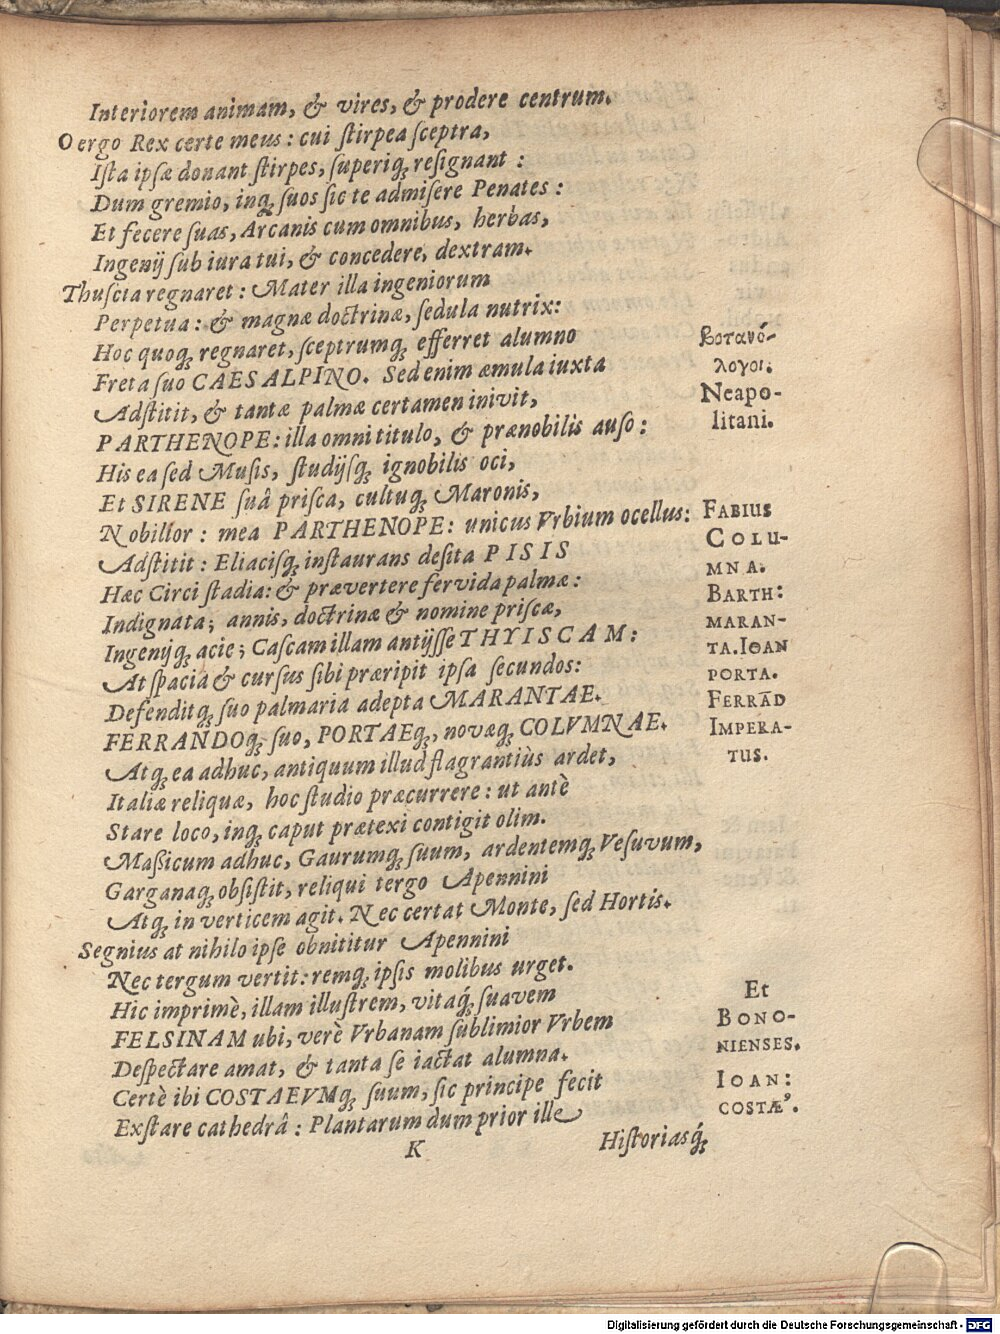 Interiorem animam, & vires, & prodere centrum.
O ergo Rex certe meus: cui ſtirpea ſceptra,
Iſta ipſæ donant ſtirpes, ſuperiq́; reſignant:
Dum gremio, inq́; ſuos ſic te admiſere Penates:
Et fecere ſuas, Arcanis cum omnibus, herbas,
Ingenij ſub iura tui, & concedere, dextram.
Thuſcia regnaret: Mater illa ingeniorum
Perpetua: & magnæ doctrinæ, ſedula nutrix:
Hoc quoq; regnaret, ſceptrumq; efferret alumno
Freta ſuo CAESALPINO. Sed enim æmula iuxta
Adſtitit, & tantæ palmæ certamen inivit,
PARTHENOPE: illa omni titulo, & prænobilis auſo:
His ea ſed Muſis, ſtudijſq; ignobilis oci,
Et SIRENE ſuâ priſca, cultuq; Maronis,
Nobilior: mea PARTHENOPE: unicus Vrbium ocellus:
Adſtitit: Eliaciſq; inſtaurans deſita PISIS
Hæc Circi ſtadia: & prævertere fervida palmæ:
Indignata; annis, doctrinæ & nomine priſcæ,
Ingenijq; acie; Caſcam illam antijſſe THYISCAM:
At ſpacia & curſus ſibi præripit ipſa ſecundos:
Defenditq; ſuo palmaria adepta MARANTAE.
FERRANDOq; ſuo, PORTAEq;, novæq; COLVMNAE.
Atq; ea adhuc, antiquum illud flagrantiùs ardet,
Italiæ reliquæ, hoc ſtudio præcurrere: ut antè
Stare loco, inq; caput prætexi contigit olim.
Maſſicum adhuc, Gaurumq; ſuum, ardentemq; Veſuvum,
Garganaq; obſiſtit, reliqui tergo Apennini
Atq; in verticem agit. Nec certat Monte, ſed Hortis.
Segnius at nihilo ipſe obnititur Apennini
Nec tergum vertit: remq; ipſis molibus urget.
Hic imprimè, illam illuſtrem, vitaq́; ſuavem
FELSINAM ubi, verè Vrbanam ſublimior Vrbem
Deſpectare amat, & tanta ſe iactat alumna.
Certè ibi COSTAEVMq; ſuum, ſic principe fecit
Exſtare cathedrâ: Plantarum dum prior ille
K
Hiſtoriasq́;
βοτανό-
λογοι.
Neapo-
litani.
FABIUS
COLU-
MNA.
BARTH:
MARAN-
TA. IOAN
PORTA.
FERRĀD
IMPERA-
TUS.
Et
BONO-
NIENSES.
IOAN:
COSTÆ'.
Digitalisierung gefördert durch die Deutsche Forschungsgemeinschaft - DFG